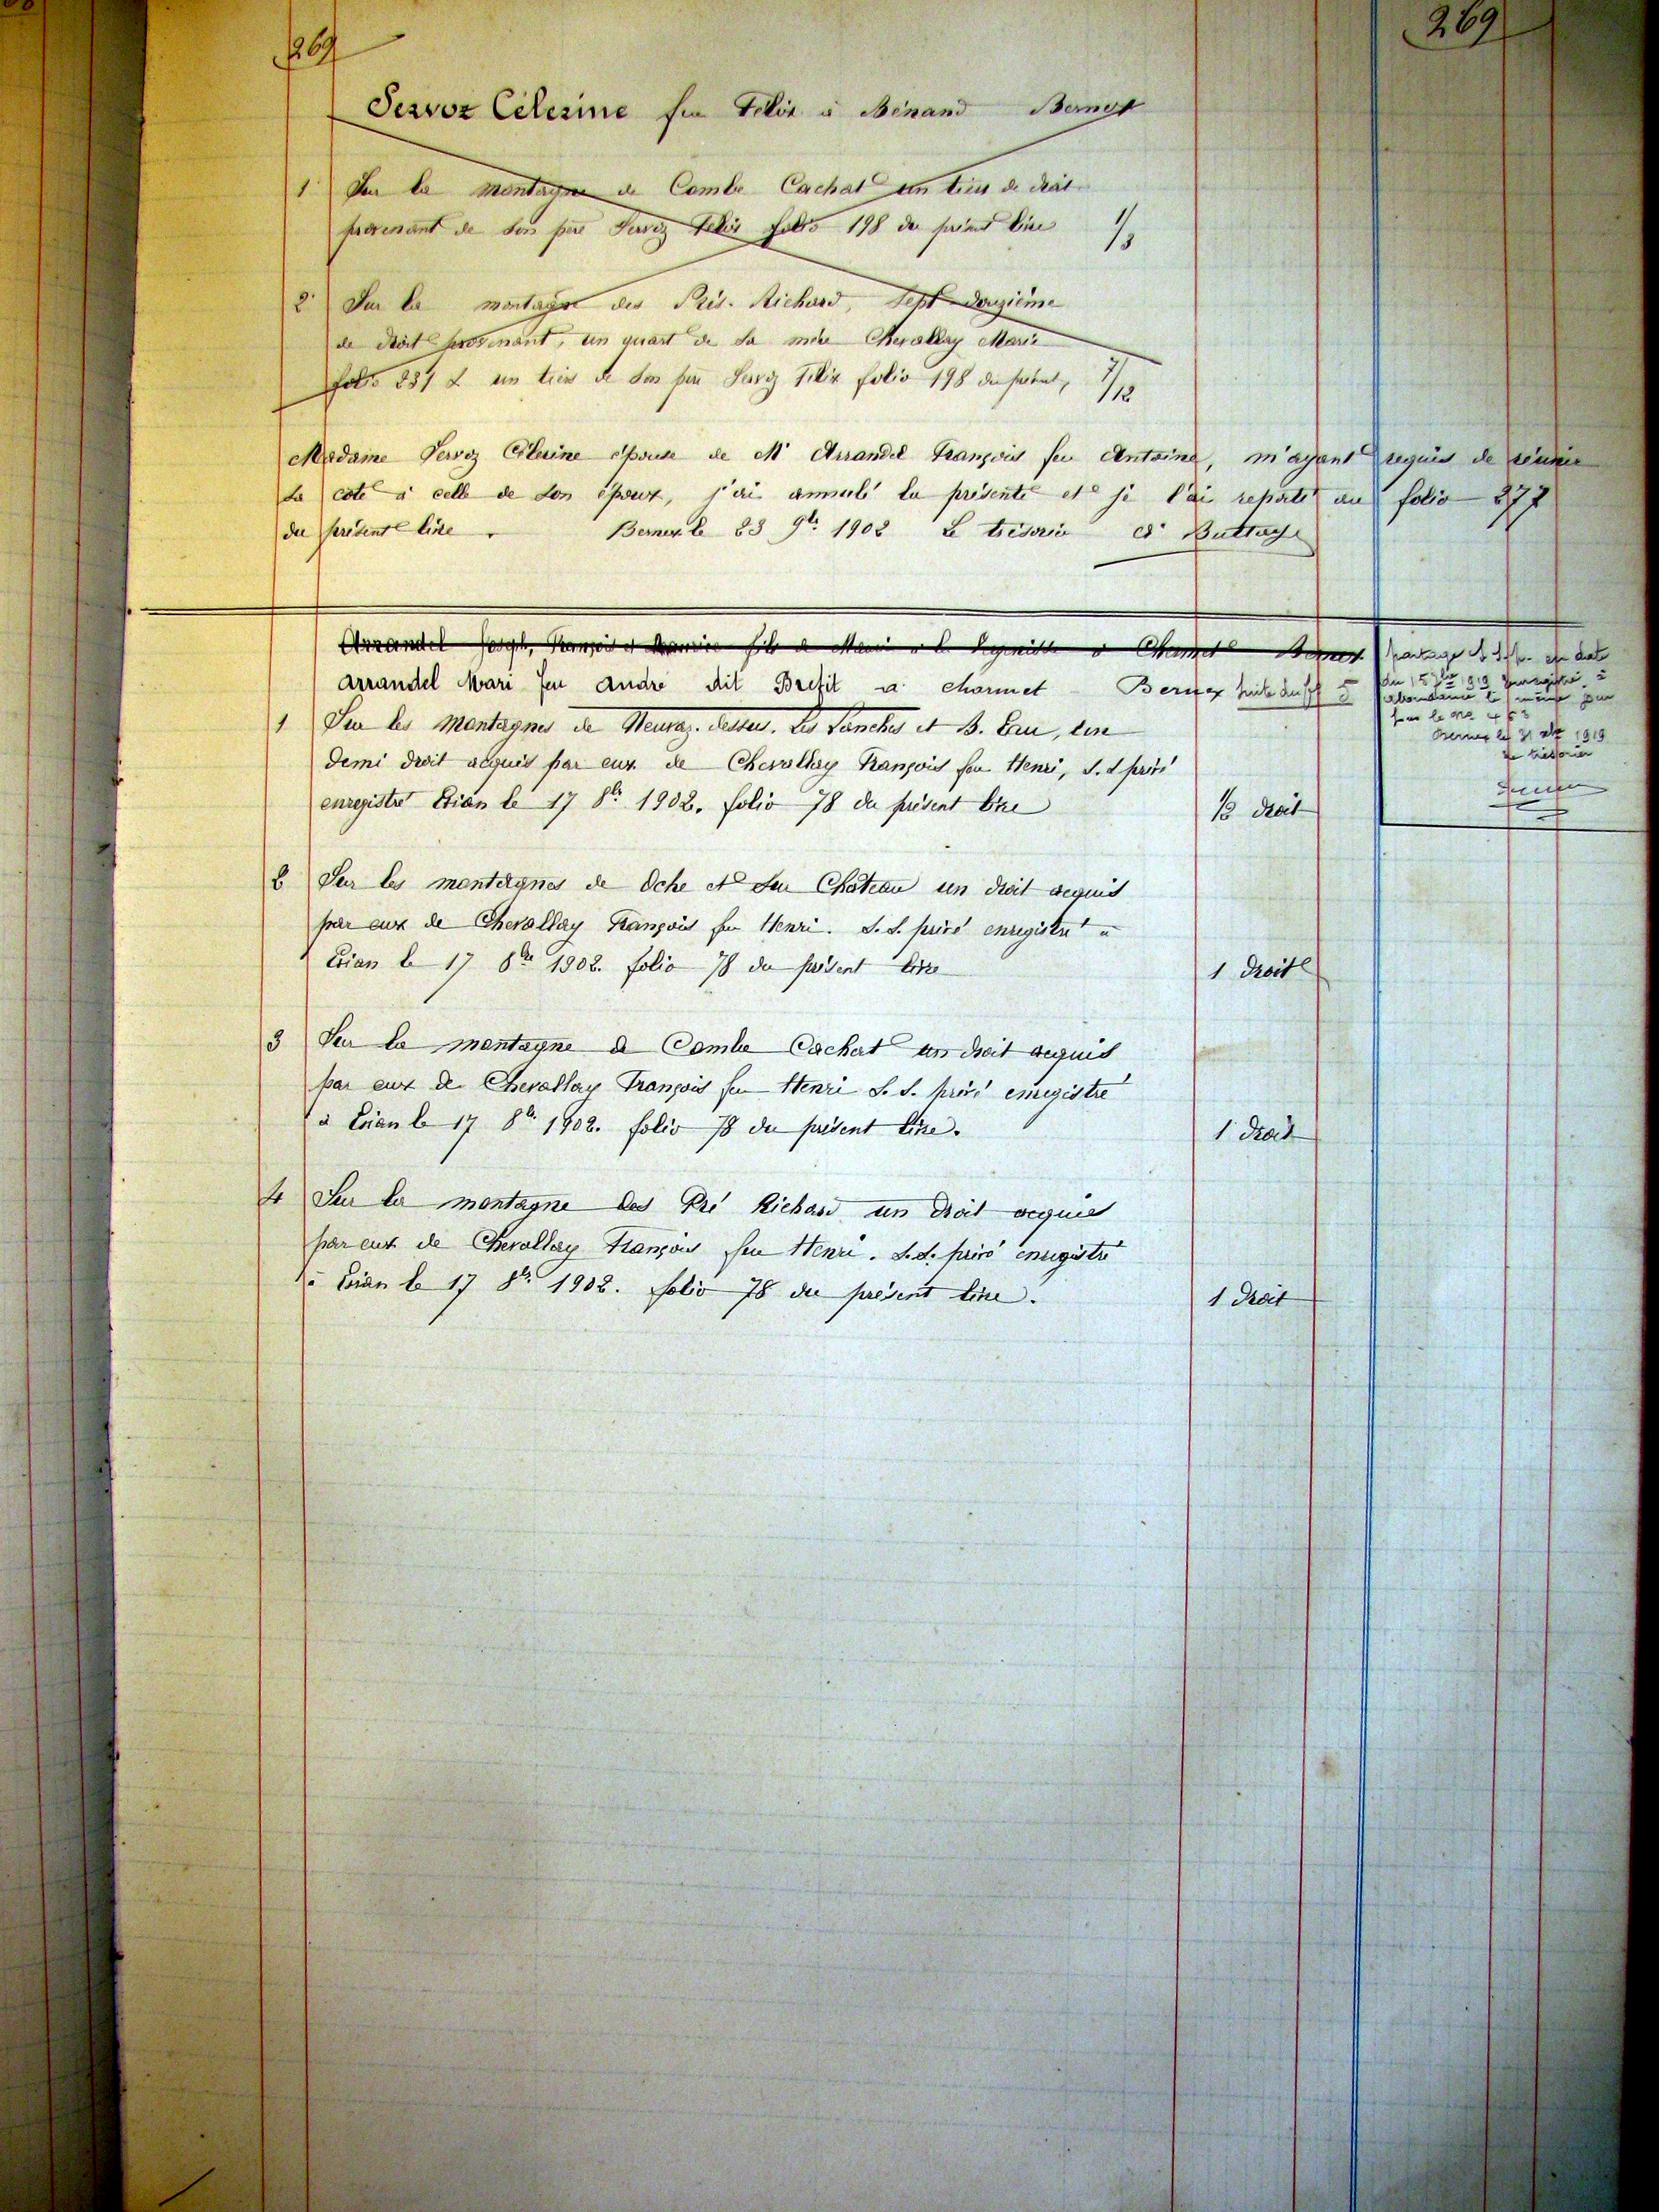 269
269
Servoz Célerine feu Félix à Bénand Bernex
1° Sur la montagne de Combe Cachat un tiers de droit
provenant de son père Servoz Félix folio 198 du présent livre 1/3
2° Sur la montagne des Prés-Richard, sept douzième
de droit provenant, un quart de sa mère Chevallay Marie
folio 231 & un tiers de son père Servoz Félix folio 198 du présent, 7/12
Madame Servoz Célerine épouse de Mr Arrandel François feu Antoine, m'ayant requis de réunir
sa cote à celle de son époux, j'ai annulé la présente et je l'ai reporté au folio 277
du présent livre. Bernex le 23 9bre 1902 Le trésorier Buttay
Arrandel Joseph, François et Maurice fils de Marie à Charmet Bernex
Arrandel Mari feu André dit Brefit à charmet Bernex suite du ff 5
partage S.S.p. en date
du 15 1919 Enregistré à
abondance le même jour
sous le No 463
Bernex le 31 1919
Le trésorier
1 Sur les Montagnes de Neuvaz-dessus. Les Lanches et B. Eau, un
demi droit acquis par eux de Chevallay François feu Henri, S.S privé
enregistré Evian le 17 8bre 1902. folio 78 du présent livre 1/2 droit
2 Sur les montagnes de Oche et du Château un droit acquis
par eux de Chevallay François feu Henri. S.S. privé enregistré à
Evian le 17 8bre 1902. folio 78 du présent livre 1 droit
3 Sur la montagne de Combe Cachat un droit acquis
par eux de Chevallay François feu Henri S.S. privé enregistré
à Evian le 17 8bre 1902. folio 78 du présent livre. 1 droit
4 Sur la montagne des Pré Richard un droit acquis
par eux de Chevallay François feu Henri. S.S. privé enregistré
à Evian le 17 8bre 1902. folio 78 du présent livre. 1 droit